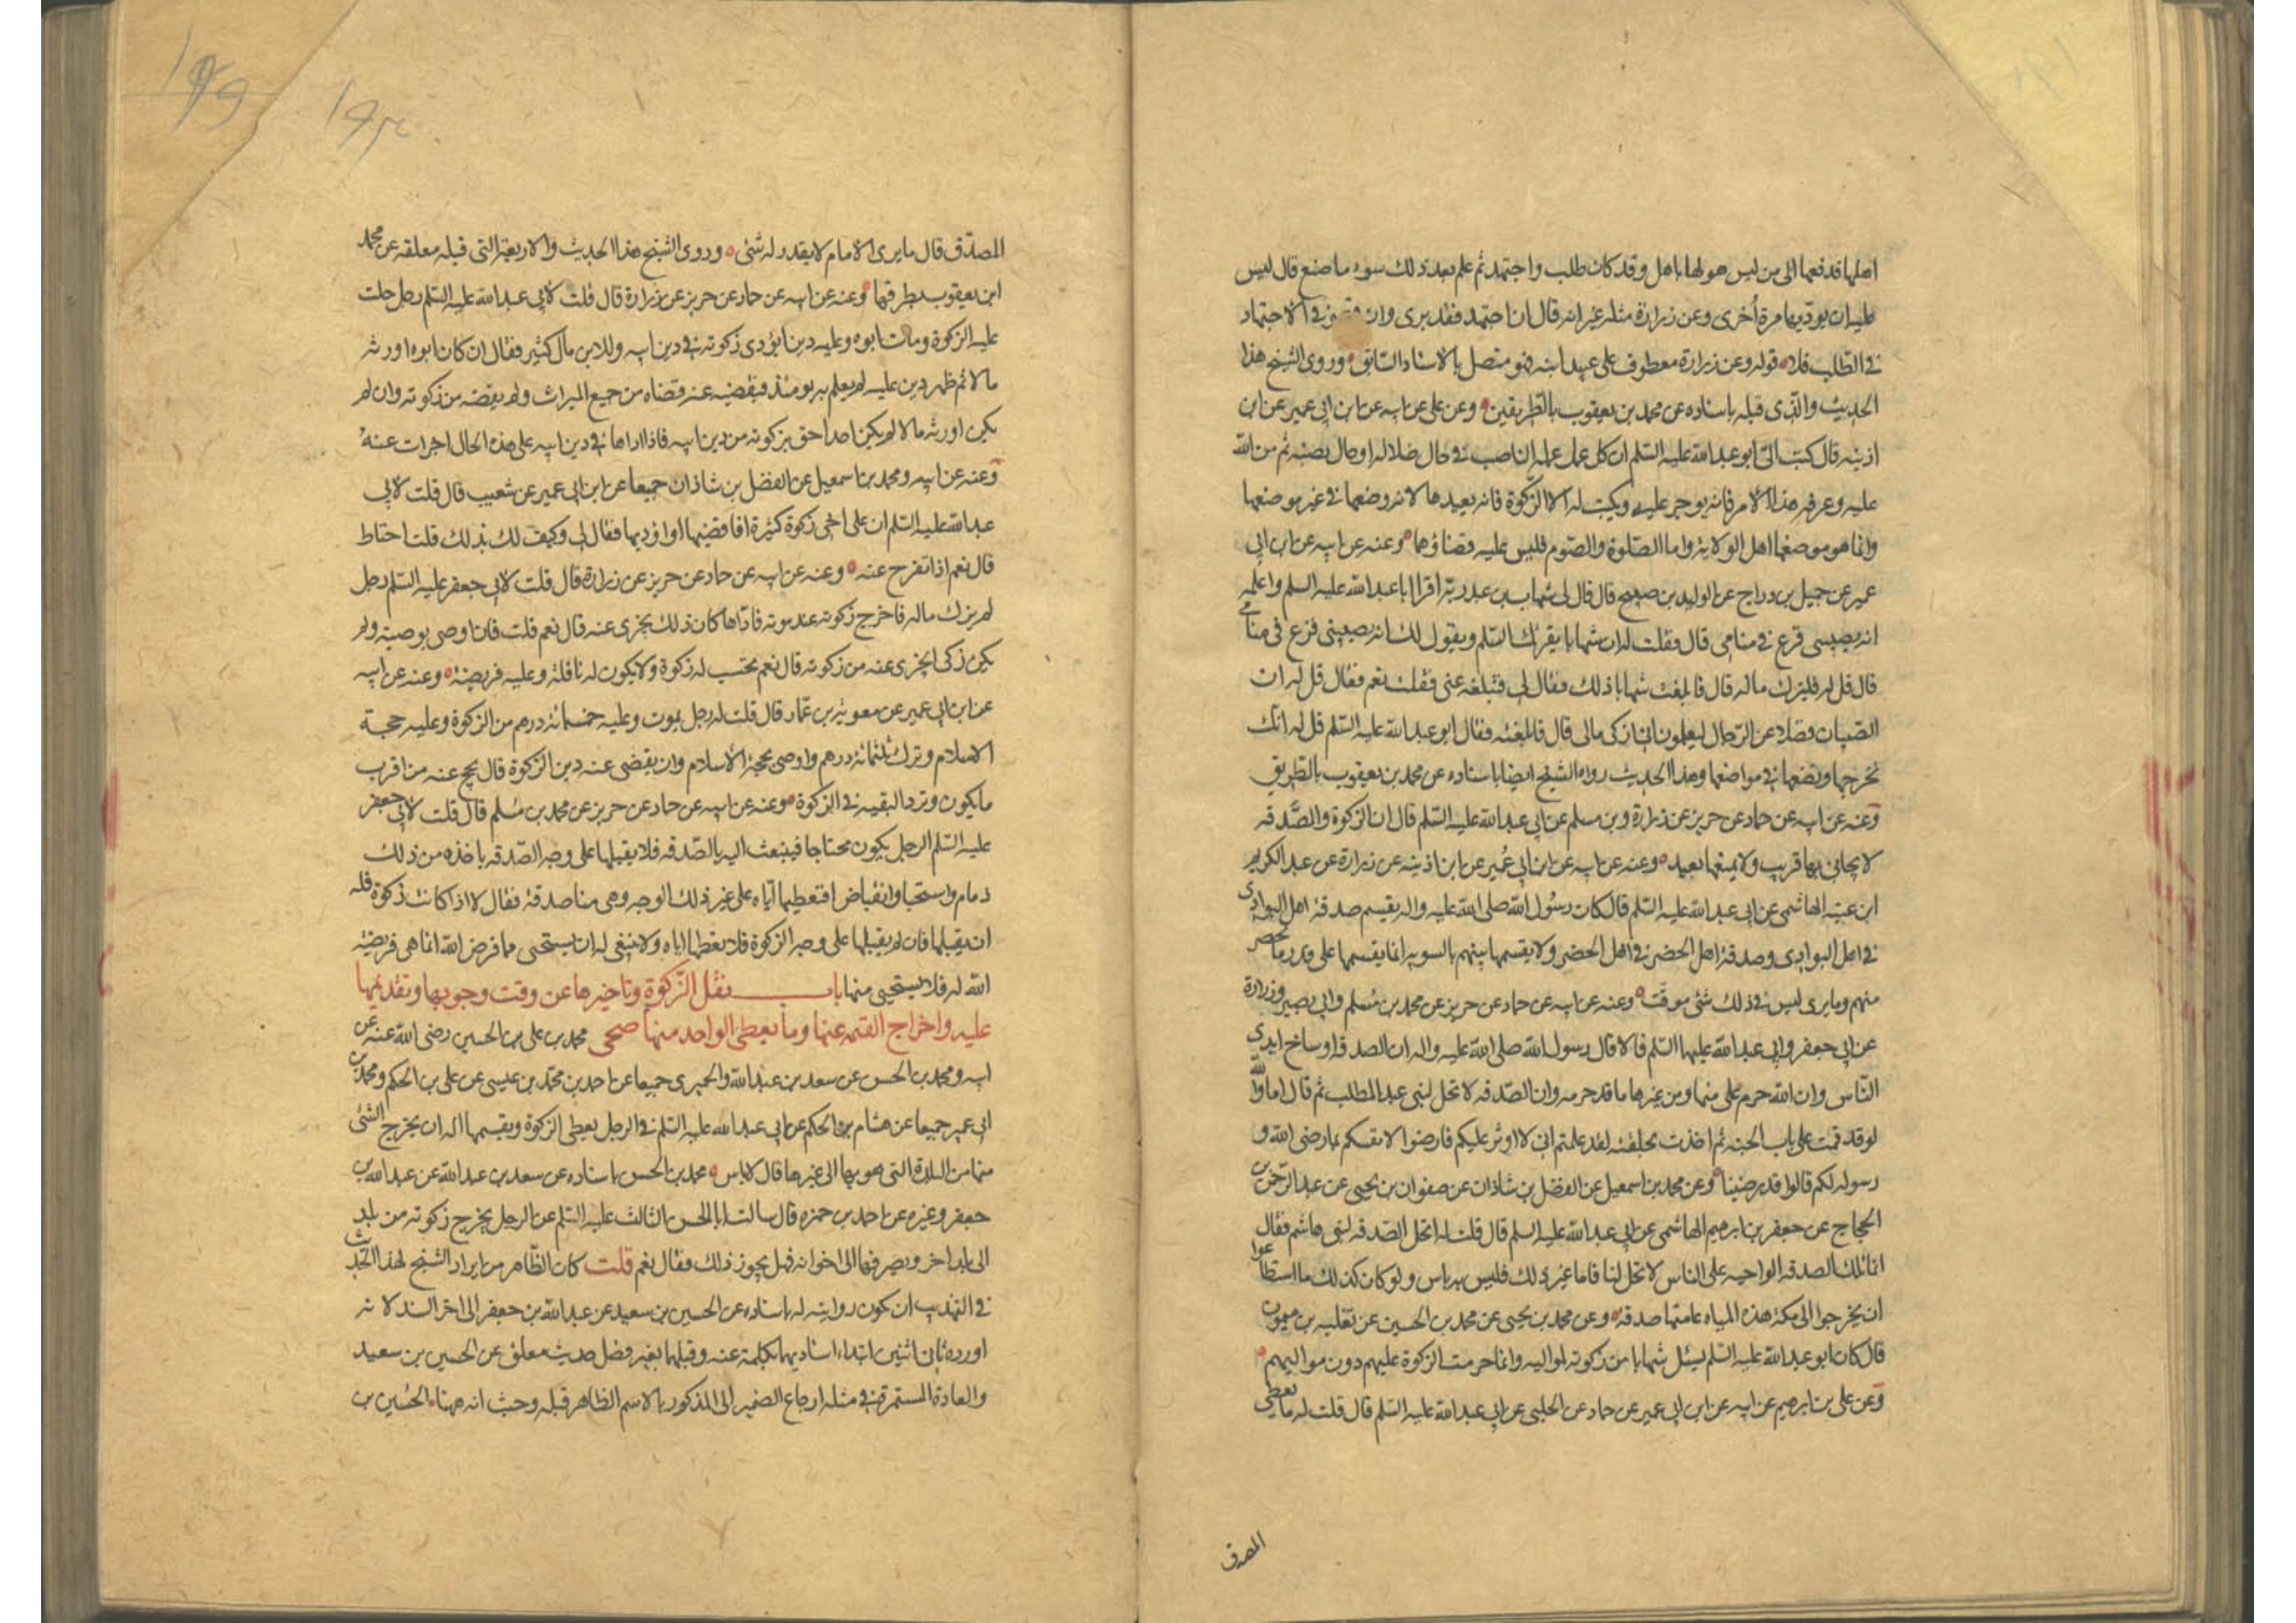 اهلها فدفعها الى من ليس هو لها باهل وقد كان طلب واجتهد ثم علم بعد ذلك سوء ما صنع قال ليس
عليه ان يؤديها مرة اخرى وعن زرارة مثله غير انه قال ان اجتهد فقد برى وان قصر في الاجتهاد
في الطلب فلا قوله وعن زرارة معطوف على عبيد ابنه فهو متصل بالاسناد السابق وروى الشيخ هذا
الحديث والذى قبله باسناده عن محمد بن يعقوب بالطريقين وعن على عن ابيه عن ابن ابي عمير عن ابن
اذينه قال كتب الىّ ابو عبد الله عليه السلم ان كل عمل عمله الناصب في حال ضلاله او حال نصبه ثم من الله
عليه وعرفه هذا الامر فانه يوجر عليه ويكتب له الا الزكوة فانه يعيدها لانه وضعها في غير موضعها
وانما هو موضعها اهل الولاية واما الصلوة والصوم فليس عليه قضاؤهما وعنه عن ابيه عن ابن ابي
عمير عن جميل بن دراج عن الوليد بن صبيح قال قال لى شهاب بن عبد ربه اقرا ابا عبد الله عليه السلم واعلمه
انه يصيبني فزع في منامي قال فقلت له ان شهابا يقرئك السلم ويقول لك انه يصيبني فزع في منامي
قال قل له فليزك ماله قال فابلغت شهابا ذلك فقال لى فتبلغه عنى فقلت نعم فقال قل له ان
الصبيان فضلا عن الرجال ليعلمون انى ازكى مالى قال فابلغته فقال ابو عبد الله عليه السلم قل له انك
تخرجها وتضعها في مواضعها وهذا الحديث رواه الشيخ ايضا باسناده عن محمد بن يعقوب بالطريق
وعنه عن ابيه عن حماد عن حريز عن زرارة وبن مسلم عن ابي عبد الله عليه السلم قال ان الزكوة والصّدقه
لا يحابى بها قريب ولا يمنعها بعيد وعنه عن ابيه عن ابن ابي عُمير عن ابن اذينه عن زرارة عن عبد الكريم
ابن عتبه الهاشمى عن ابي عبد الله عليه السلم قال كان رسُول الله صلى الله عليه واله يقسم صدقة اهل البوادى
في اهل البوادى وصدقة اهل الحضر في اهل الحضر ولا يقسمها بينهم بالسويه انما يقسمها على قدر ما يحضر
منهم وما يرى ليس في ذلك شئ موقت وعنه عن ابيه عن حماد عن حريز عن محمد بن مُسلم وابي بصير وزرارة
عن ابي جعفر وابي عبد الله عليهما السلم قالا قال رسول الله صلى الله عليه واله ان الصدقة اوساخ ايدى
النّاس وان الله حرم على منها ومن غيرها ما قد حرمه وان الصّدقه لا تحل لبنى عبد المطلب ثم قال اما والله
لو قد قمت على باب الجنه ثم اخذت بحلقته لقد علمتم انى لا اوثر عليكم فارضوا لانفسكم بما رضى الله و
رسوله لكم قالوا قد رضينا وعن محمد بن اسمعيل عن الفضل بن شاذان عن صفوان بن يحيى عن عبد الرّحمن بن
الحجاج عن جعفر بن ابرهيم الهاشمى عن ابي عبد الله عليه السلم قال قلت له اتحل الصّدقه لبنى هاشم فقال
انما تلك الصدقه الواجبه على الناس لا تحل لنا فاما غير ذلك فليس به باس ولو كان كذلك ما استطاعوا
ان يخرجوا الى مكة هذه المياه عامتها صدقه وعن محمد بن يحيى عن محمد بن الحسين عن ثعلبه بن ميمون
قال كان ابو عبد الله عليه السلم يسئل شهابا من زكوته لمواليه وانما حرمت الزكوة عليهم دون مواليهم
وعن على بن ابرهيم عن ابيه عن ابن ابي عمير عن حماد عن الحلبى عن ابي عبد الله عليه السّلم قال قلت له ما يعطى
المصدق
المصدّق قال ما يرى الامام لا يقدر له شئ وروى الشيخ هذا الحديث والاربعة التى قبله معلقه عن محمد
ابن يعقوب بطرقها وعنه عن ابيه عن حماد عن حريز عن زرارة قال قلت لابى عبد الله عليه السلم رجل حلت
عليه الزكوة ومات ابوه وعليه دين ايؤدى زكوته في دين ابيه وللابن مال كثير فقال ان كان ابوه اورثه
مالا ثم ظهر دين عليه لم يعلم به يومئذ فيقضيه عنه قضاه من جميع الميراث ولم يقضه من زكوته وان لم
يكن اورثه مالا لم يكن احد احق بزكوته من دين ابيه فاذا اداها في دين ابيه على هذه الحال اجزات عنهُ
وعنه عن ابيه ومحمد بن اسمعيل عن الفضل بن شاذان جميعا عن ابن ابي عمير عن شعيب قال قلت لابي
عبد الله عليه السلم ان على اخى زكوة كثيرة افاقضيها او اؤديها فقال لى وكيف لك بذلك قلت احتاط
قال نعم اذا تفرح عنه وعنه عن ابيه عن حماد عن حريز عن زرارة قال قلت لابي جعفر عليه السّلم رجل
لم يزك ماله فاخرج زكوته عند موته فادّاها كان ذلك يجزى عنه قال نعم قلت فان اوصى بوصيته ولم
يكن زكى ايجزى عنه من زكوته قال نعم يحتسب له زكوة ولا يكون له نافلة وعليه فريضة وعنه عن ابيه
عن ابن ابي عمير عن معوية بن عمّار قال قلت له رجل يموت وعليه خمسمائة درهم من الزكوة وعليه حجة
الاسلام وترك ثلثمائة درهم واوصى بحجة الاسلام وان يقضى عنه دين الزكوة قال يحج عنه من اقرب
ما يكون وترد البقيه في الزكوة وعنه عن ابيه عن حماد عن حريز عن محمد بن مُسلم قال قلت لابى جعفر
عليه السّلم الرجل يكون محتاجا فيبعث اليه بالصّدقه فلا يقبلها على وجه الصّدقه ياخذه من ذلك
ذمام واستحيا وانقباض افنعطيها ايّاه على غير ذلك الوجه وهى منا صدقة فقال لا اذا كانت زكوة فله
ان يقبلها فان لم يقبلها على وجه الزكوة فلا يعطها اياه ولا ينبغى له ان يستحيى مما فرض الله انما هى فريضة
الله له فلا يستحيى منها باب نقل الزّكوة وتاخيرها عن وقت وجوبها وتقديمها
عليه واخراج القيمه عنها وما يعطى الواحد منها صحى محمد بن على بن الحسين رضى الله عنه عن
ابيه ومحمد بن الحسن عن سعد بن عبد الله والحميرى جميعا عن احمد بن محمّد بن عيسى عن على بن الحكم ومحمد بن
ابي عمير جميعا عن هشام بن الحكم عن ابي عبد الله عليه السّلم في الرجل يعطى الزكوة ويقسمها اله ان يخرج الشئ
منها من البلدة التى هو بها الى غيرها قال لا باس محمد بن الحسن باسناده عن سعد بن عبد الله عن عبد الله بن
جعفر وغيره عن احمد بن حمزه قال سالت ابا الحسن الثالث عليه السّلم عن الرجل يخرج زكوته من بلد
الى بلد اخر ويصرفها الى اخوانه فهل يجوز ذلك فقال نعم قلت كان الظاهر من ايراد الشيخ لهذا الحديث
في التهذيب ان يكون روايته له باسناده عن الحسين بن سعيد عن عبد الله بن جعفر الى اخر السند لانه
اورده ثانى اثنين ابتداء اسناديهما بكلمة عنه وقبلهما بغير فصل حديث معلق عن الحسين بن سعيد
والعادة المستمرة في مثله ارجاع الضمير الى المذكور بالاسم الظاهر قبله وحيث انه ههنا الحسُين بن